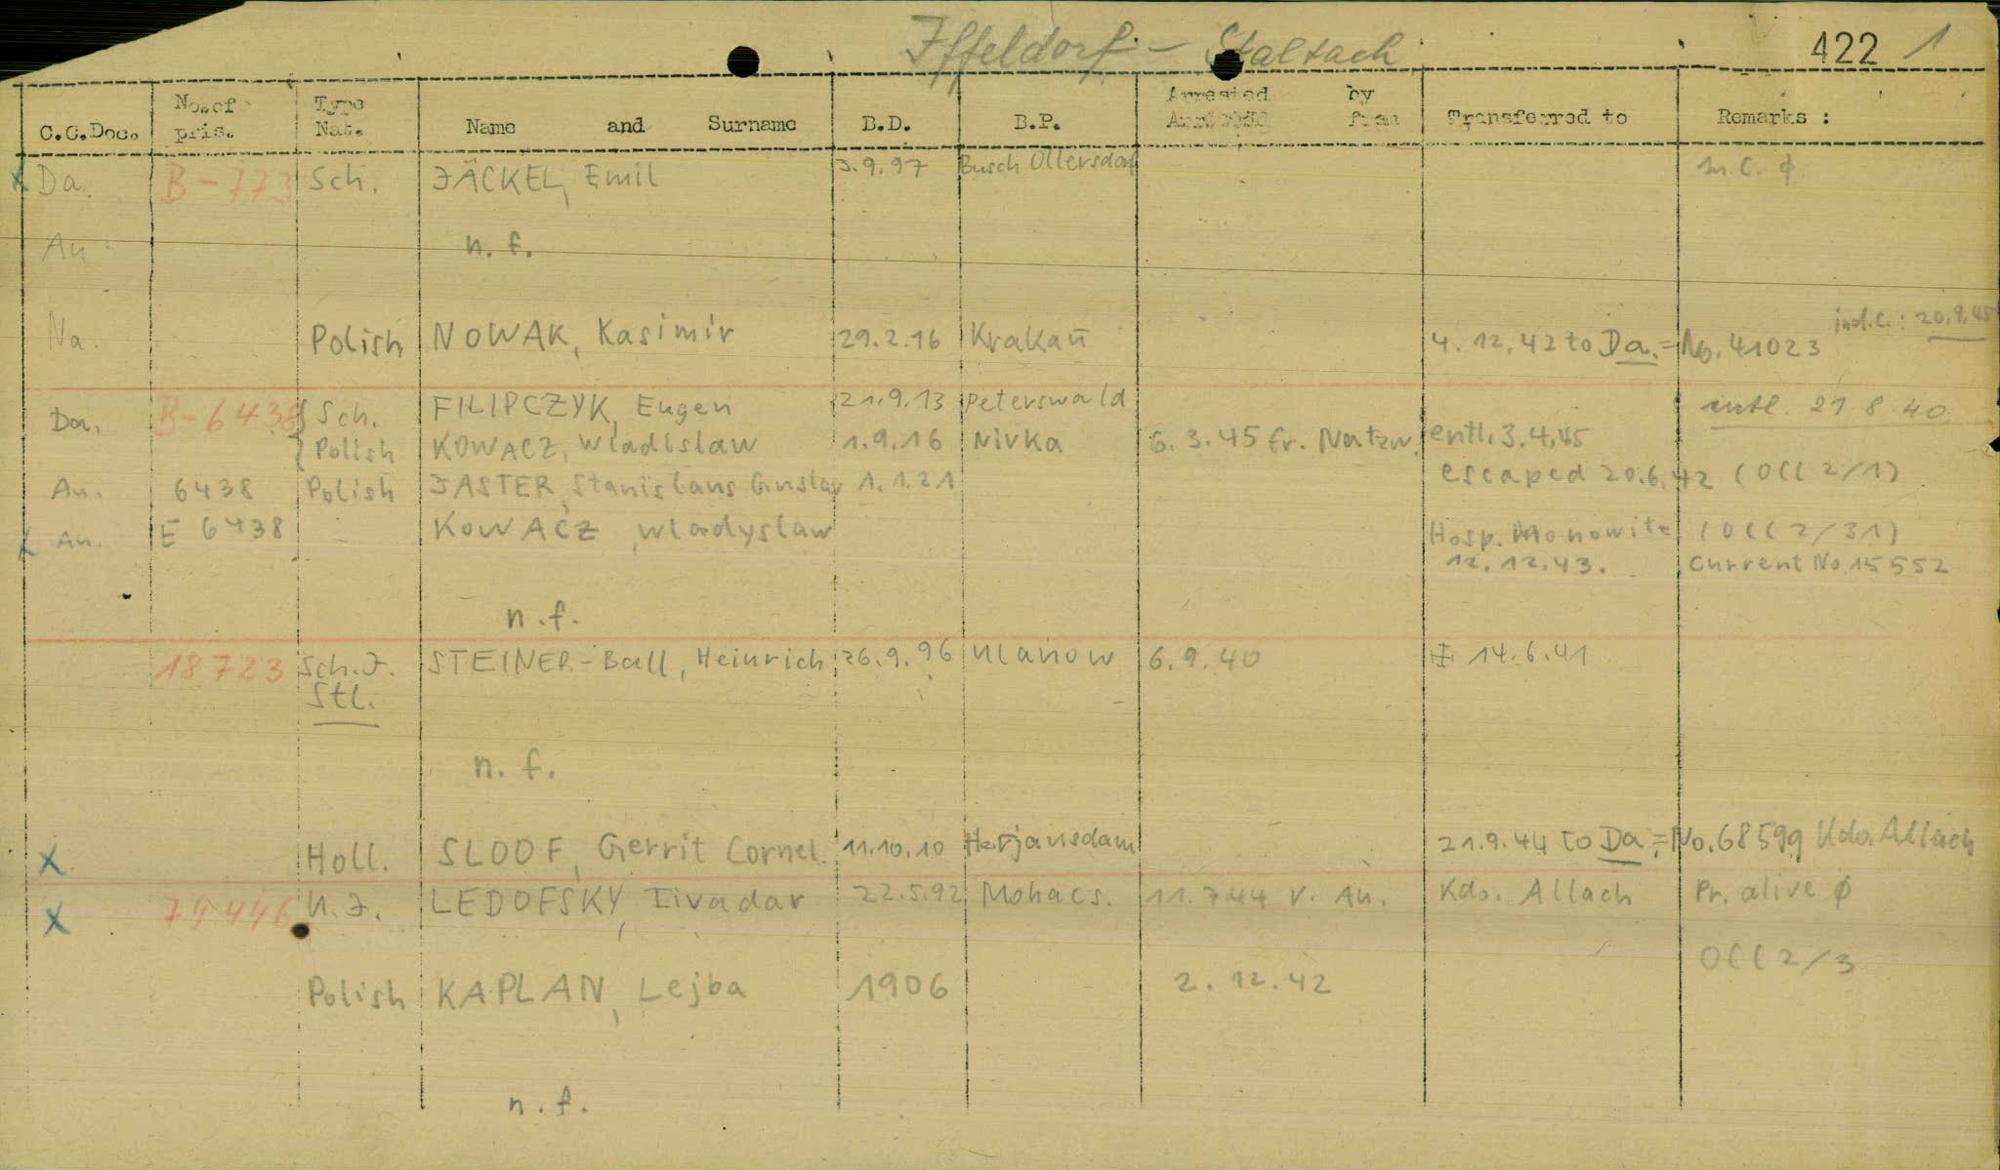 Iffeldorf - Staltach 422 1
C.C.Doc. No. of pris. Type Nat. Name and Surname B.D. B.P. Arrested by from Transferred to Remarks :
x Da. B-773 Sch. JÄCKEL, Emil 3.9.97 Busch Ollersdorf m.c. ϕ
Au n. f.
ind.c.: 20.9.45
Na. Polish NOWAK, Kasimir 29.2.16 Krakau 4.12.42 to Da. = No. 41023
Da. B-6438 { Sch. FILIPCZYK, Eugen 21.9.13 Peterswald 21 8 40.
Polish KOWACZ, Wladislaw 1.9.16 Nivka 6.3.45 fr. Natzw. entl. 3.4.45
Au. 6438 Polish JASTER, Stanislaus Gustav 1.1.21 escaped 20.6.42 (OCC 2/1)
x Au. E 6438 KOWACZ, Wladyslaw Hosp. Monowitz (OCC 2/31)
12.12.43. Current No 15552
n.f.
18723 Sch.J. STEINER-Ball, Heinrich 26.9.96 Ulanow 6.9.40 14.6.41
Stl.
n. f.
x Holl. SLOOF, Gerrit Cornel. 11.10.10 Herjansdam 21.9.44 to Da. = No. 68599 Kdo. Allach
x 79446 U.J. LEDOFSKY, Tivadar 22.5.92 Mohacs. 11.7.44 v. Au. Kdo. Allach Pr. alive ϕ
OCC 2/3
Polish KAPLAN, Lejba 1906 2.12.42
n.f.